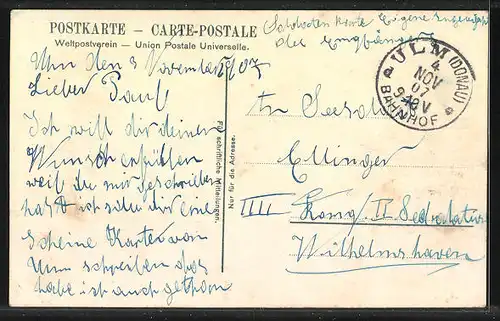 POSTKARTE – CARTE-POSTALE
Weltpostverein – Union Postale Universelle.
Soldaten Karte Eigene Angelegenheit
des Empfängers
ULM (DONAU)
4
NOV
07
9-10 V
BAHNHOF
Ulm den 3 November 1907
Lieber Paul
Ich will dir deinen
Wunsch erfüllen
weil du mir geschrieben
hast ich soll dir eine
Scheine Karte von
Ulm schreiben das
habe ich auch gethan
Für schriftliche Mitteilungen.
Nur für die Adresse.
An
Ellinger
IIII Komp. II
Wilhelmshaven